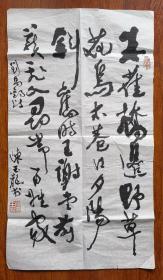 朱雀橋邊野草
花烏衣巷口夕陽
斜舊時王謝堂前
燕飛入尋常百姓家
劉禹錫詩